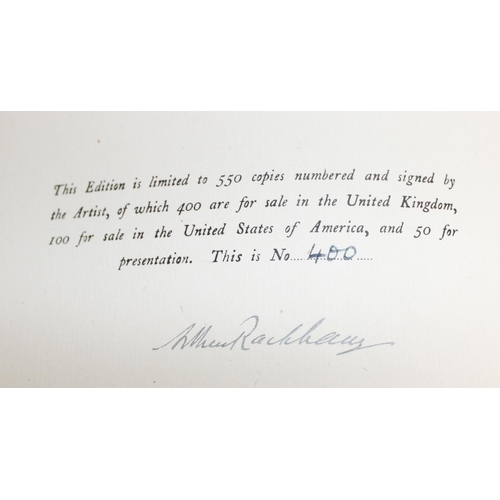 This Edition is limited to 550 copies numbered and signed by
the Artist, of which 400 are for sale in the United Kingdom,
100 for sale in the United States of America, and 50 for
presentation. This is No....400.....
Arthur Rackham